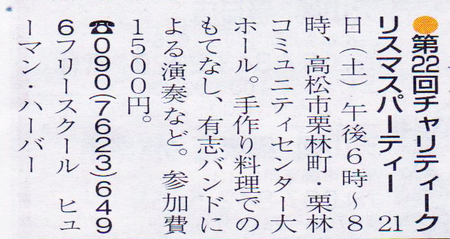 ●第22回チャリティーク
リスマスパーティー　21
日(土)午後6時〜8
時、高松市栗林町・栗林
コミュニティセンター大
ホール。手作り料理での
もてなし、有志バンドに
よる演奏など。参加費
1500円。
☎090(7623)649
6フリースクール　ヒュ
ーマン・ハーバー